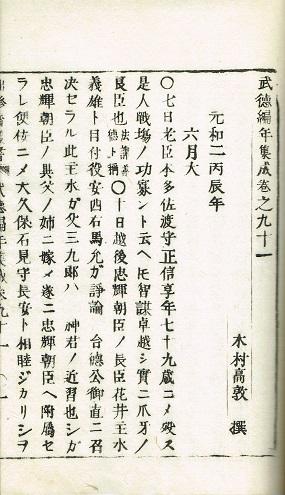 武德編年集成卷之九十一
木村高敦 撰
元和二丙辰年
六月大
○七日老臣本多佐渡守正信享年七十九歲ニメ殁ス
是人戰場ノ功寡ント云ヘ𪜈智謀卓越シ實ニ爪牙ノ
良臣也法諱善德ト稱○十日越後忠輝朝臣ノ長臣花井主水
義雄ト目付役安西右馬允ガ諍論 台德公御直ニ召
決セラル此主水ガ父三九郎ハ 神君ノ近習也シガ
忠輝朝臣ノ異父ノ姉ニ嫁メ遂ニ忠輝朝臣ヘ附屬セ
ラレ便佞ニメ大久保石見守長安ト相睦ジカリシヲ